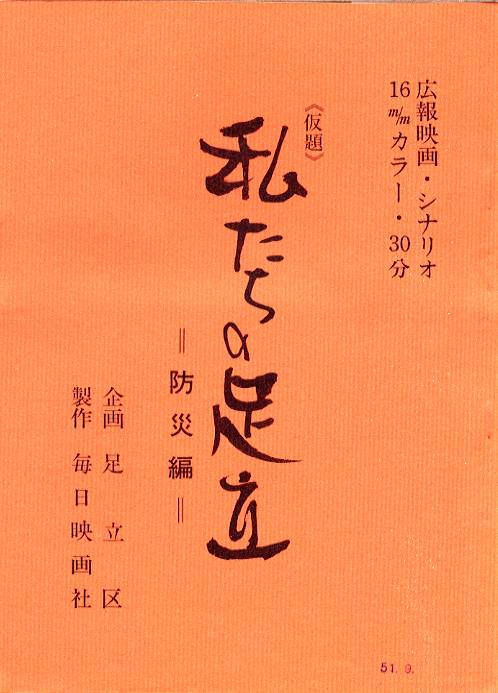 広報映画・シナリオ
16m/mカラー・30分
《仮題》
私たちの足立
=防災編=
企画 足立区
製作 毎日映画社
51.9.